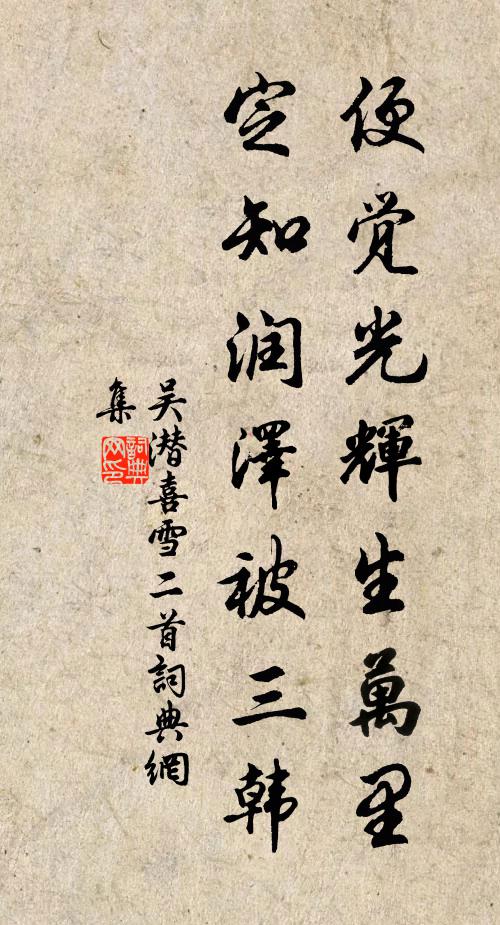 便覺光輝生萬里
定知润澤被三韩
吴潜喜雪二首詞典網
集
詞典
网印